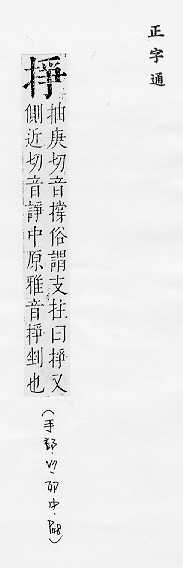 正字通
掙
抽庚切音撐俗謂支拄曰掙又
側近切音諍中原雅音掙剉也
(手部 卯中 P68)